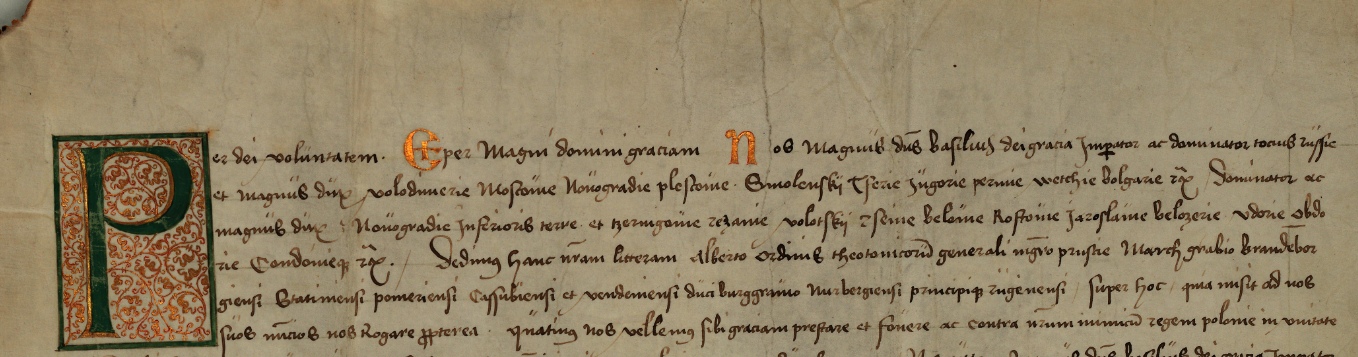 Per dei voluntatem. Et per Magni domini graciam Nos Magnus dns basilius dei gracia Imperator ac dominator tocius russie
et magnus dux volodimerie Moscovie Novogradie plescovie. Smolenskij Tferie Jugorie permie wetchie bolgarie Dominator ac
magnus dux Novogradie Inferioris terre. et tzernigovie rezanie volotskij rseuie beloiue Rostovie Jaroslavie belozerie. vdorie obdo
rie Condenieque / Dedimus hanc nram litteram Alberto Ordinis theotonicorum generali mgro prussie March grabio brandebor
giensi Statinensi pomeriensi Cassubiensi et vendeniensi duci burggravio Nurbergiensi principique rugenensi / super hoc / quia misit ad nos
suos nuncios nos Rogare propterea. quatinus nos vellemus sibi graciam prestare et fovere ac contra nrum inimicum regem polonie in unitate